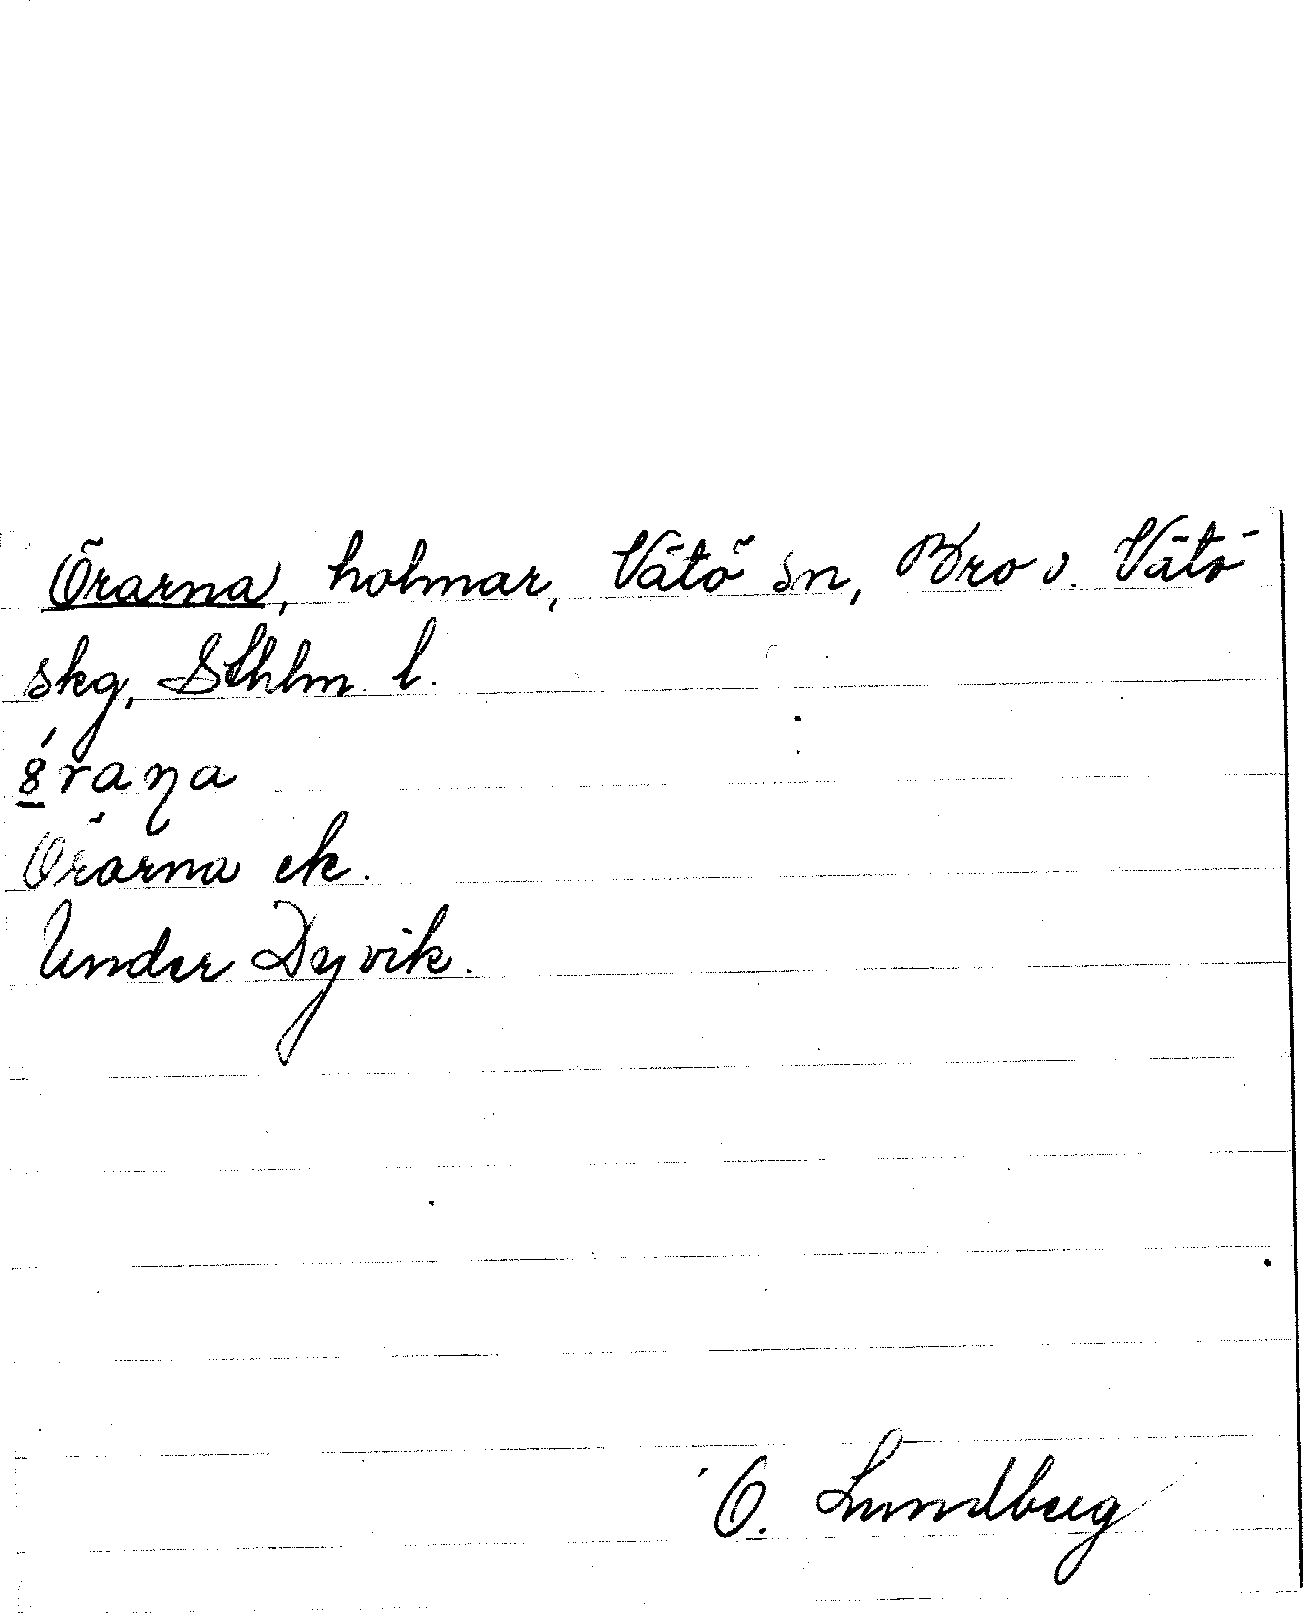 Örarna, holmar, Vätö sn, Bro o. Vätö
skg, Sthlm l.
Örarna ek.
Under Dyvik.
O. Lundberg